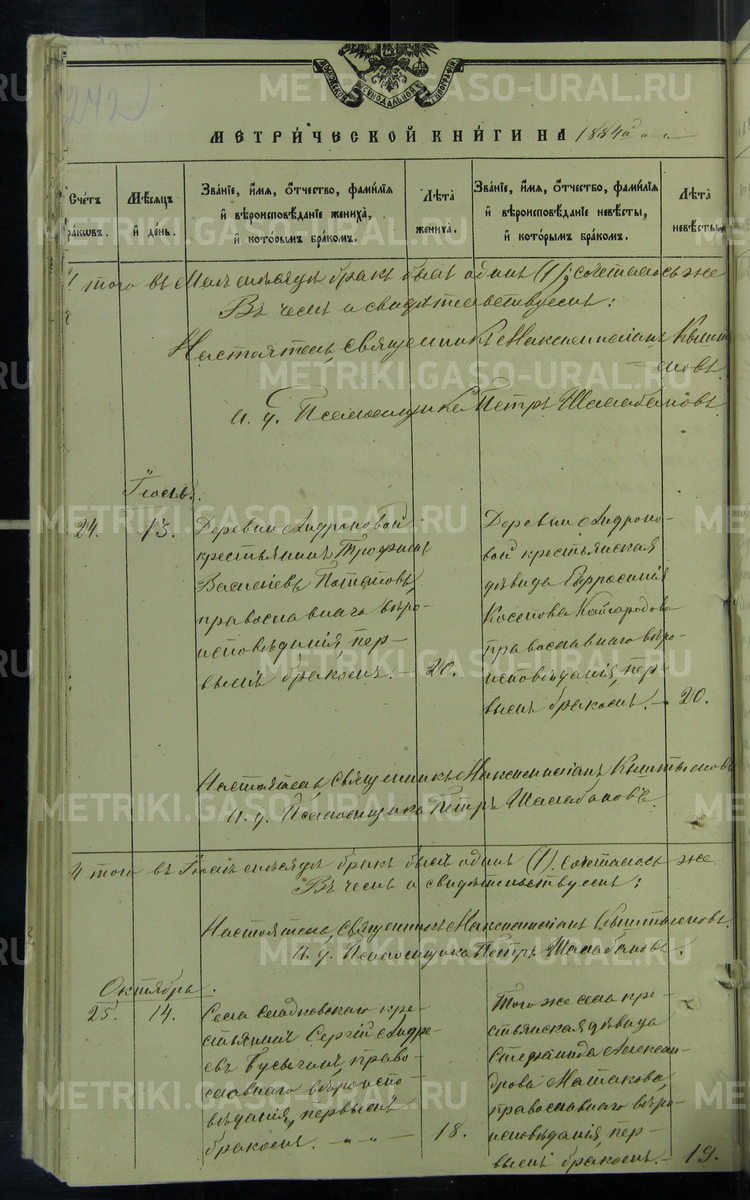 242
МОСКОВСКОЙ СѴНОДАЛЬНОЙ ТИПОГРАФІИ
МЕТРИ́ЧЕСКОЙ КНИ́ГИ НА 1884й
Сче́тъ бра́ковъ.
Мѣ́сяцъ и҆ де́нь.
Зва́ніе, и҆́мя, ѻ҆́тчество, фами́лія и҆ вѣроисповѣ́даніе жениха̀, и҆ кото́рымъ бра́комъ.
Лѣ́та жениха̀.
Зва́ніе, и҆́мя, ѻ҆́тчество, фами́лія и҆ вѣроисповѣ́даніе невѣ́сты, и҆ кото́рымъ бра́комъ.
Лѣ́та невѣ́сты.
того въ Маѣ мѣсяцѣ бракъ былъ одинъ (1); сочеталось же
Въ чемъ и свидѣтельствуемъ:
Настоятель, Священникъ Максимиліанъ
И. д. Псаломщика Петръ Шалабановъ
Іюль.
24. 13.
Деревни Андроновой
крестьянинъ Трофимъ
Васильевъ Потаповъ,
православнаго вѣро-
исповѣданія, пер-
вымъ бракомъ. — 20.
Деревни Андроно-
вой крестьянская
дѣвица Евфросинія
Косьмова Кайгородова
православнаго вѣро-
исповѣданія, пер-
вымъ бракомъ. — 20.
Настоятель Священникъ Максимиліанъ Кыштымовъ
И. д. Псаломщика Петръ Шалабановъ.
того въ Іюлѣ мѣсяцѣ бракъ былъ одинъ (1). сочеталось же
Въ чемъ и свидѣтельствуемъ:
Настоятель, Священникъ Максимиліанъ Кыштымовъ.
И. д. Псаломщика Петръ Шалабановъ.
Октябрь.
25. 14.
Села Сладковскаго кре-
стьянинъ Сергій Андре-
евъ Бусыгинъ, право-
славнаго вѣроиспо-
вѣданія, первымъ
бракомъ. — 18.
Того же села кре-
стьянская дѣвица
Стефанида Алексан-
дрова Матакова,
православнаго вѣро-
исповѣданія, пер-
вымъ бракомъ. — 19.
METRIKI.GASO-URAL.RU